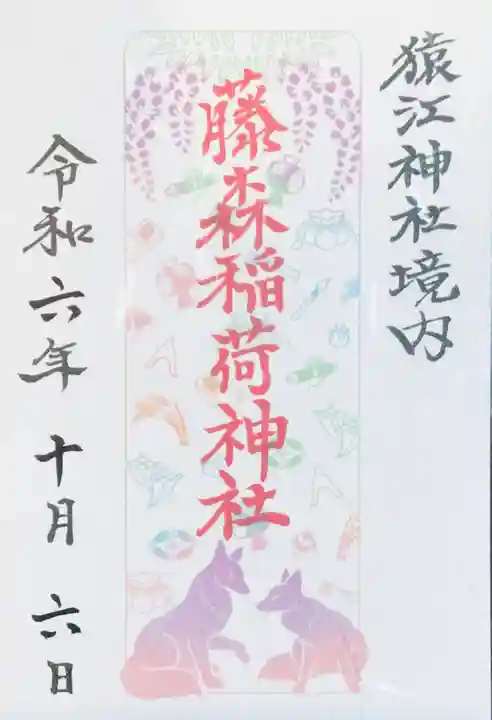 猿江神社境内
藤森稲荷神社
令和六年十月六日